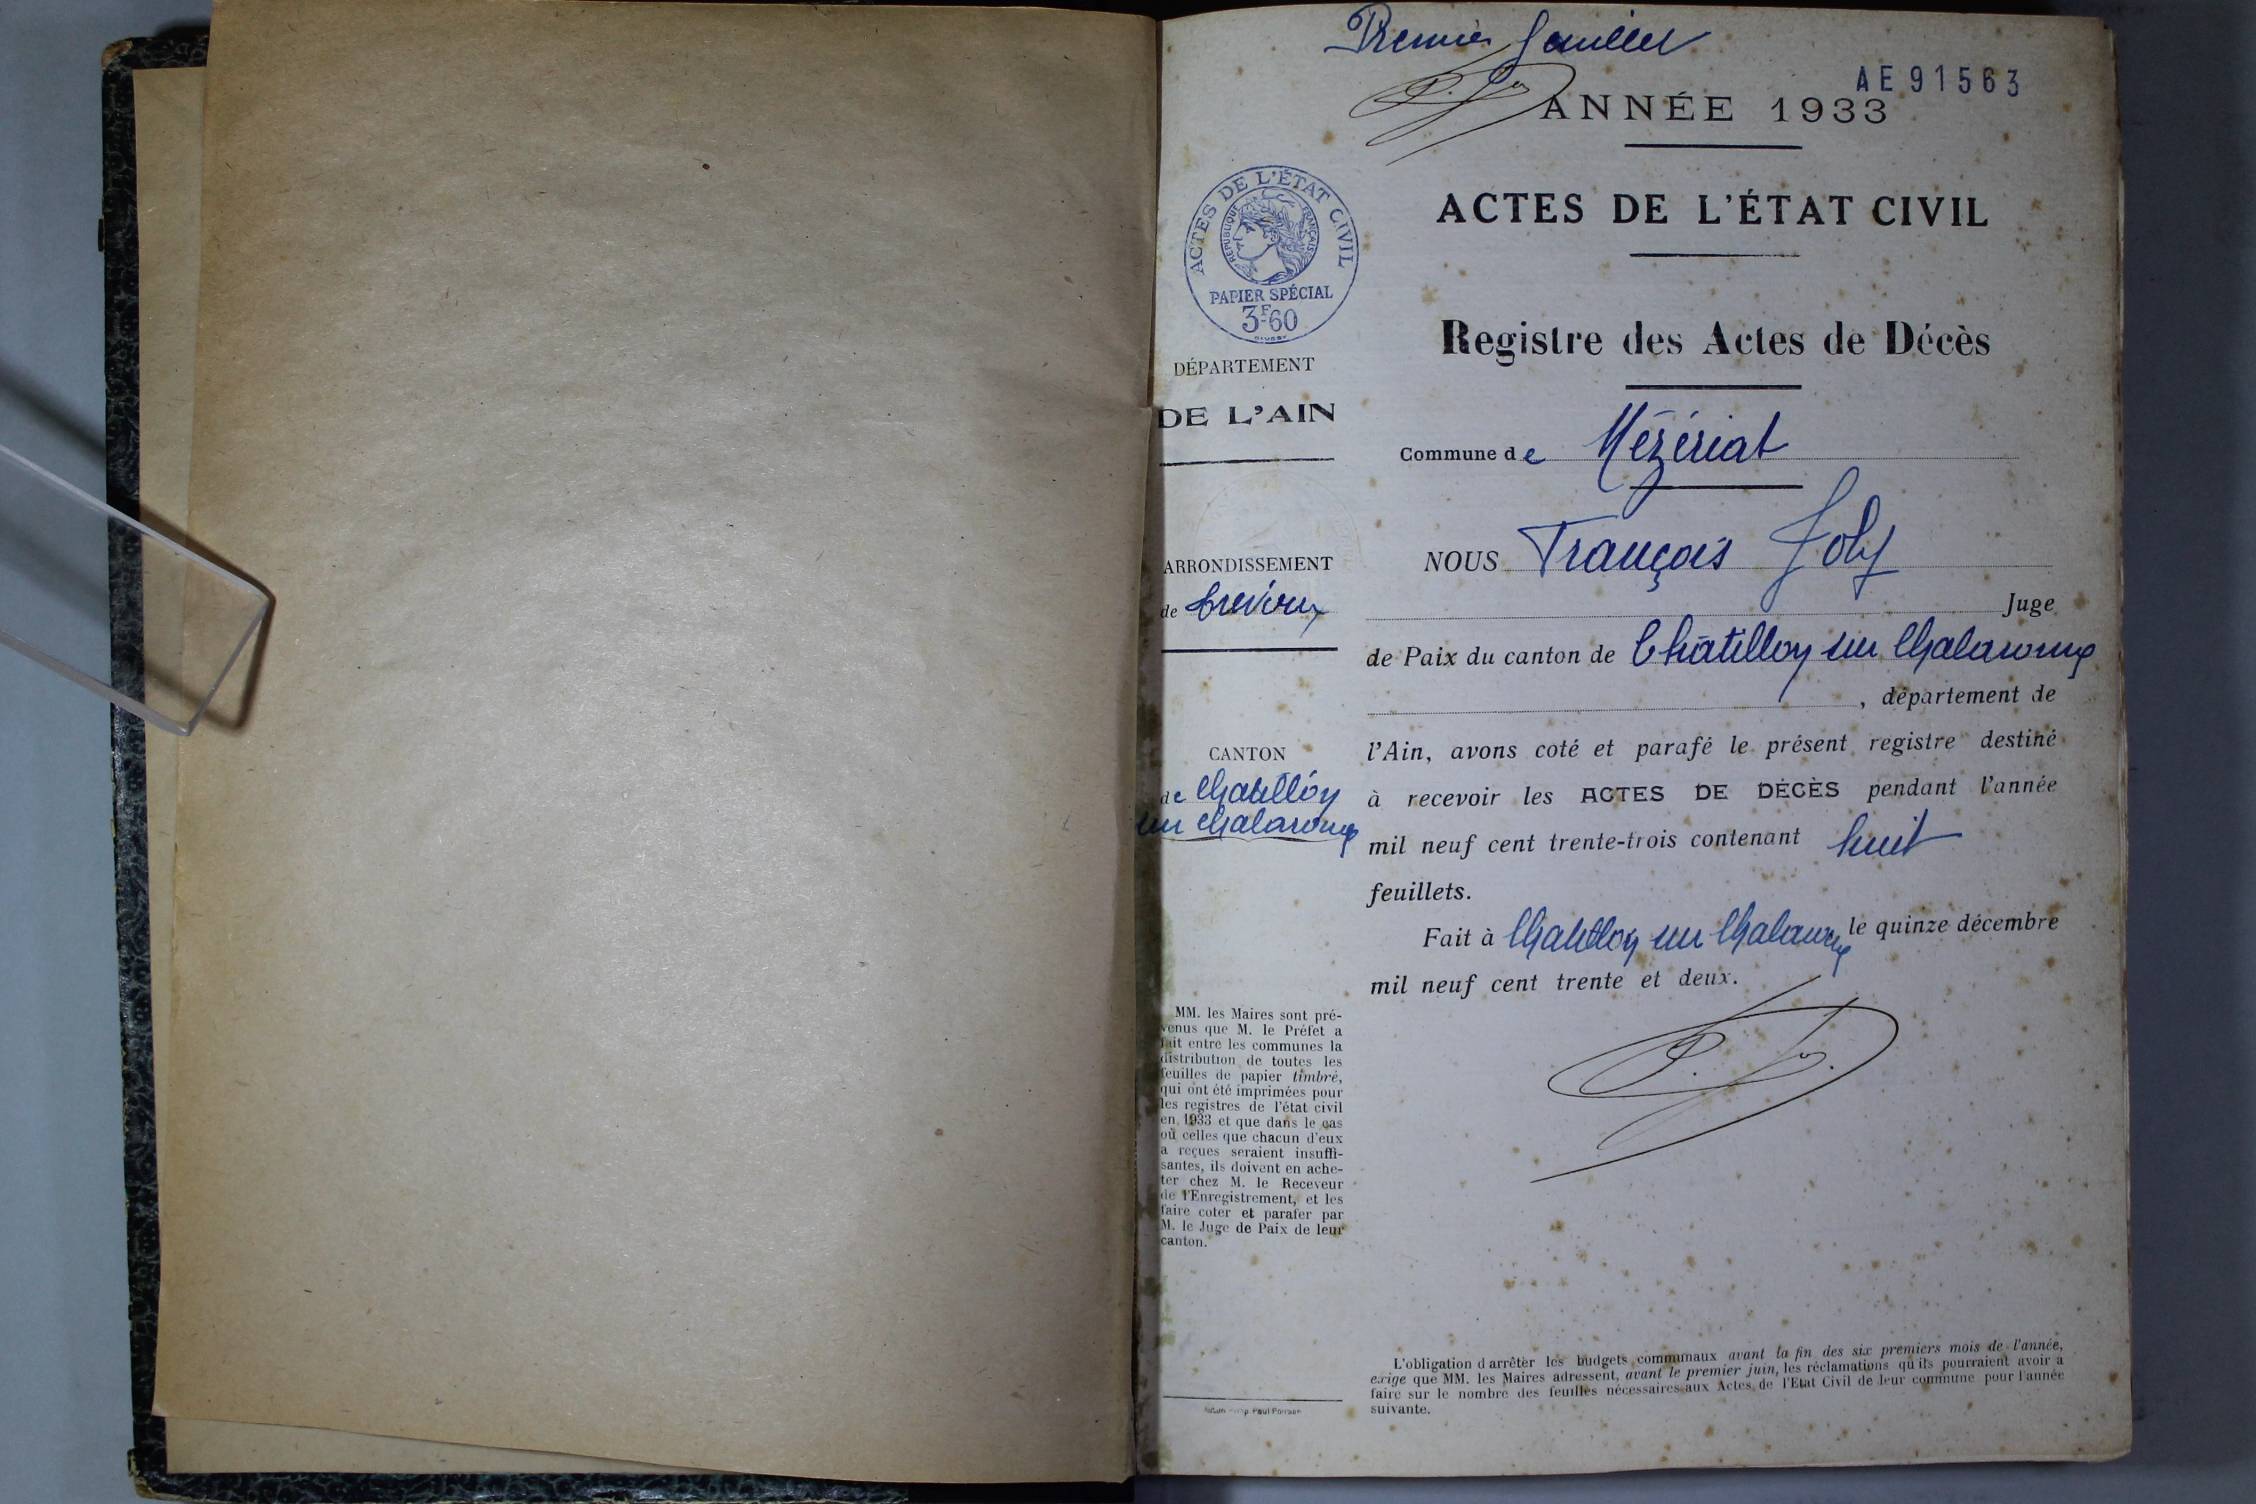 Premier feuillet
AE 91563
ANNÉE 1933
ACTES DE L'ÉTAT CIVIL
RÉPUBLIQUE FRANÇAISE
PAPIER SPÉCIAL
3F60
ACTES DE L'ÉTAT CIVIL
Registre des Actes de Décès
DÉPARTEMENT
DE L'AIN
ARRONDISSEMENT
de Trévoux
CANTON
de Chatillon
sur Chalaronne
MM. les Maires sont pré-
venus que M. le Préfet a
fait entre les communes la
distribution de toutes les
feuilles de papier timbré,
qui ont été imprimées pour
les registres de l'état civil
en 1933 et que dans le cas
où celles que chacun d'eux
a reçues seraient insuffi-
santes, ils doivent en ache-
ter chez M. le Receveur
de l'Enregistrement, et les
faire coter et parafer par
M. le Juge de Paix de leur
canton.
Commune de Mézériat
NOUS François Joly
Juge
de Paix du canton de Châtillon sur Chalaronne
, département de
l'Ain, avons coté et parafé le présent registre destiné
à recevoir les ACTES DE DÉCÈS pendant l'année
mil neuf cent trente-trois contenant huit
feuillets.
Fait à Chatillon sur Chalaronne le quinze décembre
mil neuf cent trente et deux.
L'obligation d'arrêter les budgets communaux avant la fin des six premiers mois de l'année,
exige que MM. les Maires adressent, avant le premier juin, les réclamations qu'ils pourraient avoir à
faire sur le nombre des feuilles nécessaires aux Actes de l'Etat Civil de leur commune pour l'année
suivante.